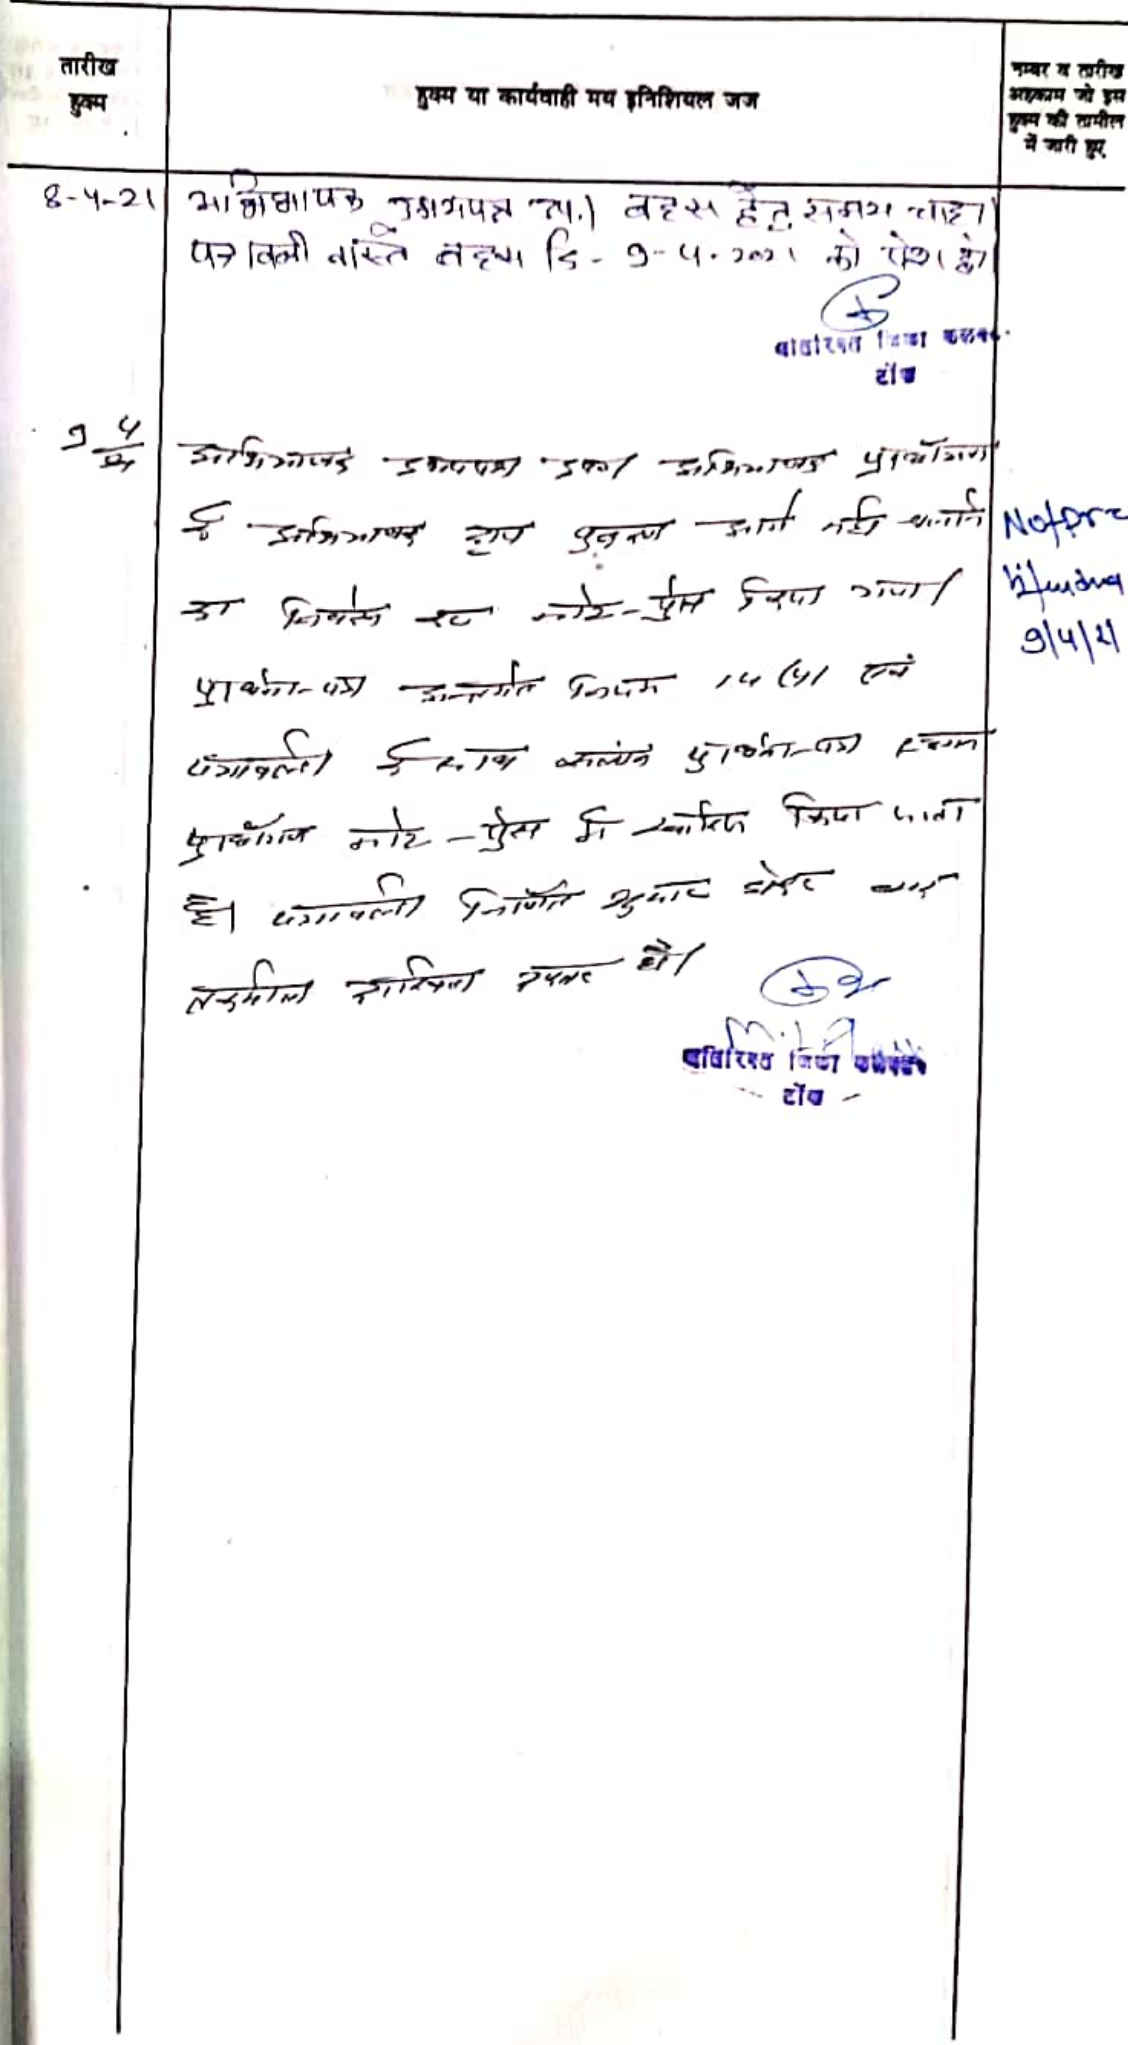 तारीख
हुक्म
हुक्म या कार्यवाही मय इनिशियल जज
नम्बर व तारीख
अहकाम जो इस
हुक्म की तामील
में जारी हुए
8-4-21
अभिभाषक उभयपक्ष उप.। बहस हेतु समय चाहा।
पत्रावली वास्ते बहस दि- 9-4-2021 को पेश हो।
अतिरिक्त जिला कलक्टर
टोंक
9 4/21
अभिभाषक उभयपक्ष उप०। अभिभाषक प्रार्थीगण
के अभिभाषक द्वारा मुकदमा आगे नहीं चलाने
का निवेदन कर नोट-प्रेस किया गया।
प्रार्थना-पत्र अन्तर्गत नियम 14 (4) एवं
पत्रावली के साथ संलग्न प्रार्थना-पत्र स्थगन
प्रार्थीगण नोट-प्रेस में खारिज किया जाता
है। पत्रावली निर्णित शुमार होकर बाद
तकमील दाखिल दफ्तर हो।
अतिरिक्त जिला कलेक्टर
टोंक
Not pre
9/4/21